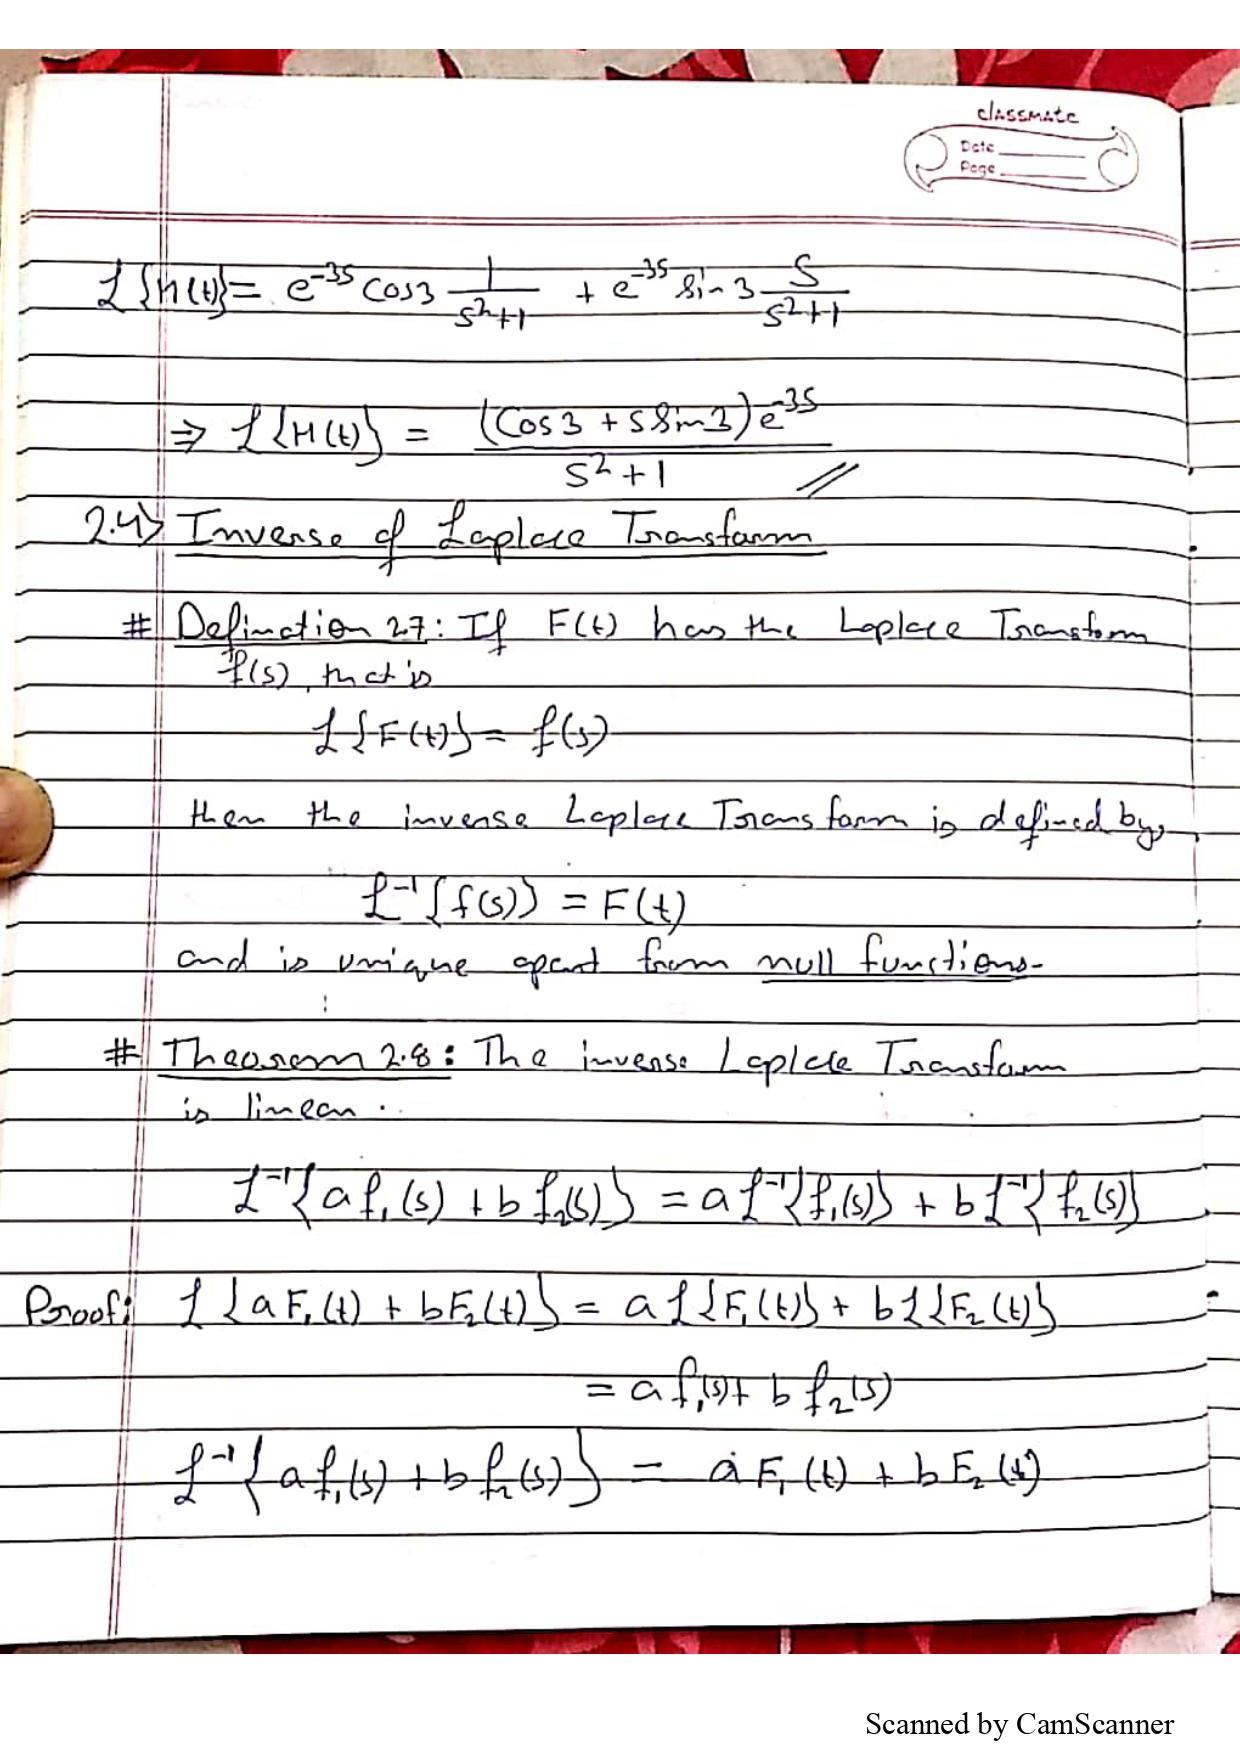 classmate
Date
Page
L{h(t)} = e^-3s cos3 1/(s²+1) + e^-3s Sin 3 s/(s²+1)
⇒ L{H(t)} = (Cos3 + s Sin3) e^-3s / (s²+1) //
2.4> Inverse of Laplace Transform
# Definction 2.7: If F(t) has the Laplace Transform
f(s), that is
L{F(t)} = f(s)
then the inverse Laplace Transform is defined by,
L⁻¹{f(s)} = F(t)
and is unique apart from null functions.
# Theorem 2.8: The inverse Laplace Transform
is linear.
L⁻¹{a f₁(s) + b f₂(s)} = a L⁻¹{f₁(s)} + b L⁻¹{f₂(s)}
Proof: L{a F₁(t) + b F₂(t)} = a L{F₁(t)} + b L{F₂(t)}
= a f₁(s) + b f₂(s)
L⁻¹{a f₁(s) + b f₂(s)} = a F₁(t) + b F₂(t)
Scanned by CamScanner